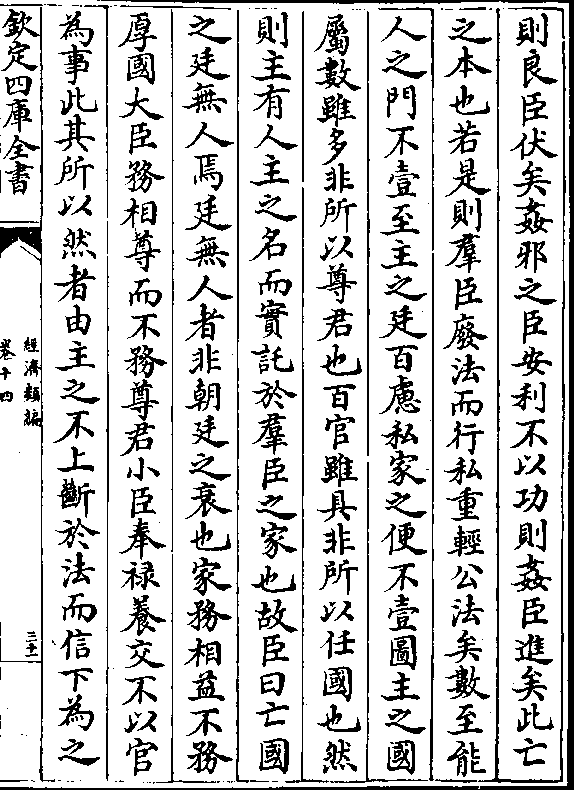 則良臣伏矣姦邪之臣安利不以功則姦臣進矣此亡
之本也若是則羣臣廢法而行私重輕公法矣數至能
人之門不壹至主之廷百慮私家之便不壹圖主之國
屬數雖多非所以尊君也百官雖具非所以任國也然
則主有人主之名而實託於羣臣之家也故臣曰亡國
之廷無人焉廷無人者非朝廷之衰也家務相益不務
厚國大臣務相尊而不務尊君小臣奉禄養交不以官
為事此其所以然者由主之不上斷於法而信下為之
欽定四庫全書
經濟類編
卷十四
三十一